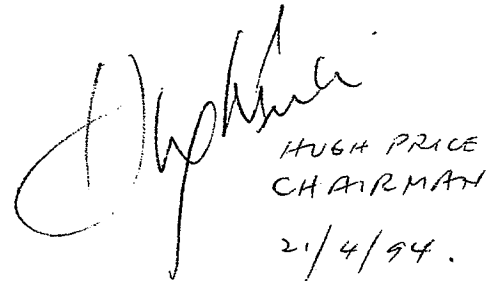 HUGH PRICE
CHAIRMAN
21/4/94.